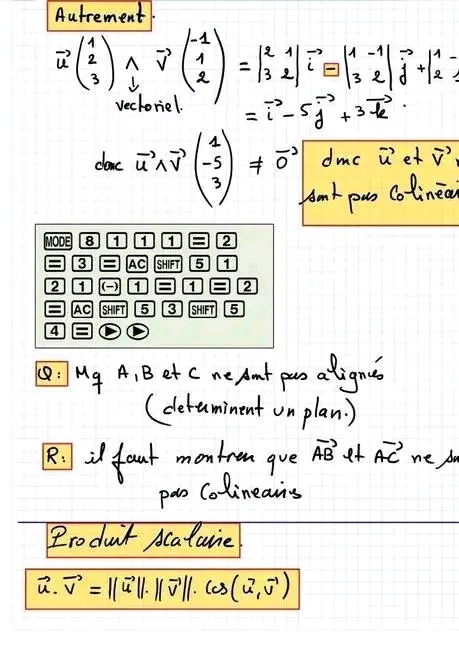 Autrement.
u⃗ (1 2 3) ∧ v⃗ (-1 1 2) = |2 1 3 2| i⃗ - |1 -1 3 2| j⃗ + |1 - 2
vectoriel.
= i⃗ - 5j⃗ + 3k⃗
donc u⃗∧v⃗ (1 -5 3) ≠ 0⃗ donc u⃗ et v⃗
sont pas Colinéai
MODE 8 1 1 1 = 2
= 3 = AC SHIFT 5 1
2 1 (-) 1 = 1 = 2
= AC SHIFT 5 3 SHIFT 5
4 = ▶ ▶
Q: Mq A, B et C ne sont pas alignés
(determinent un plan.)
R: il faut montrer que AB⃗ et AC⃗ ne
pas Colineairs
Produit scalaire.
u⃗.v⃗ = ||u⃗||.||v⃗||. cos(u⃗,v⃗)